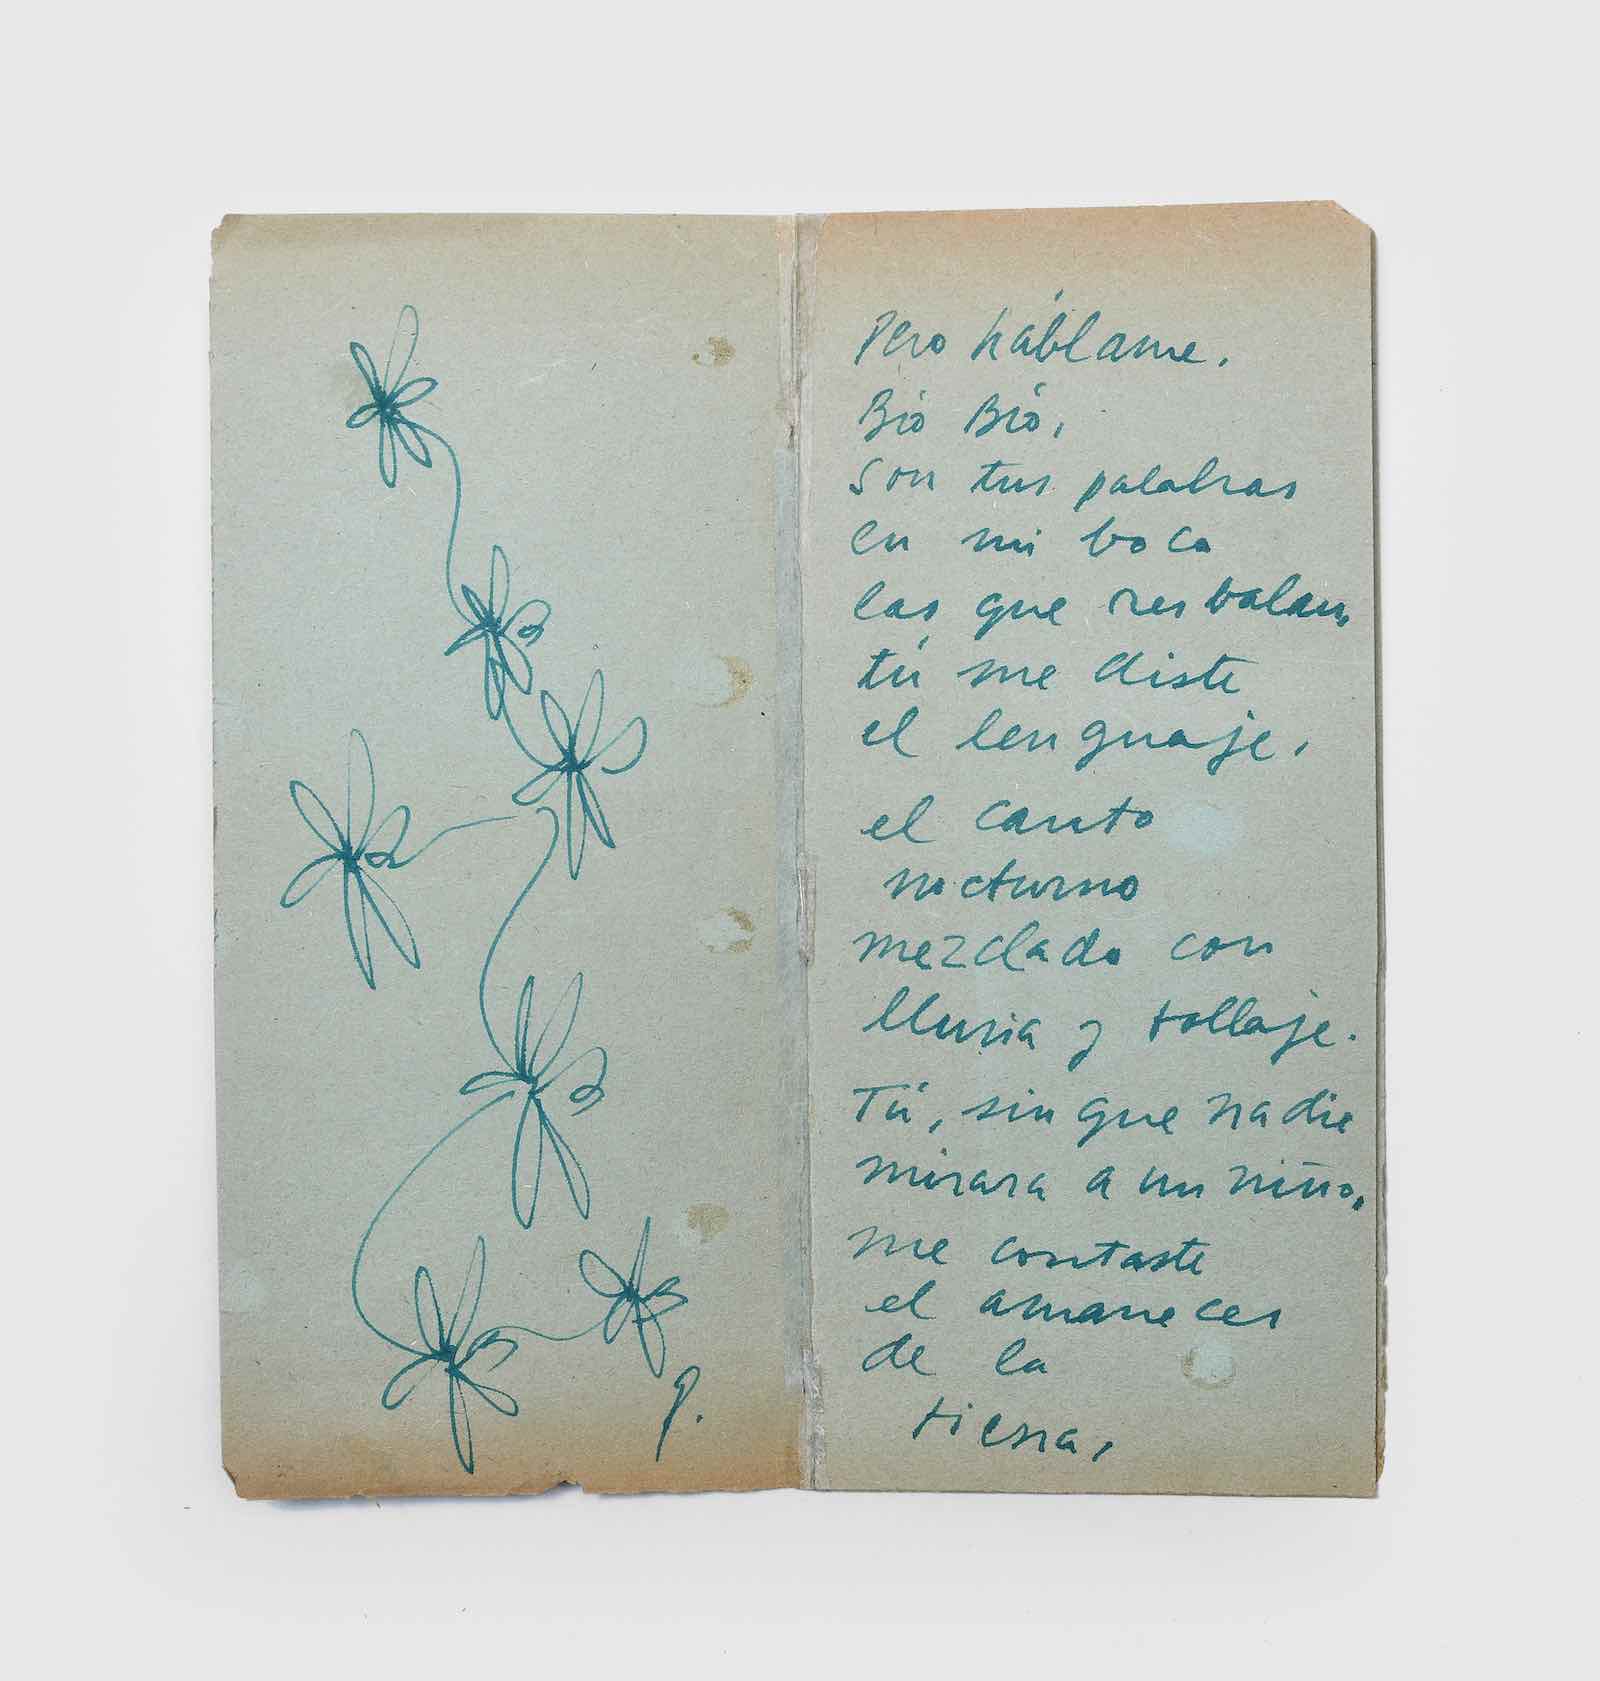 P.
Pero háblame,
Bío Bío,
son tus palabras
en mi boca
las que resbalan,
tú me diste
el lenguaje,
el canto
nocturno
mezclado con
lluvia y follaje.
Tú, sin que nadie
mirara a un niño,
me contaste
el amanecer
de la
tierra,